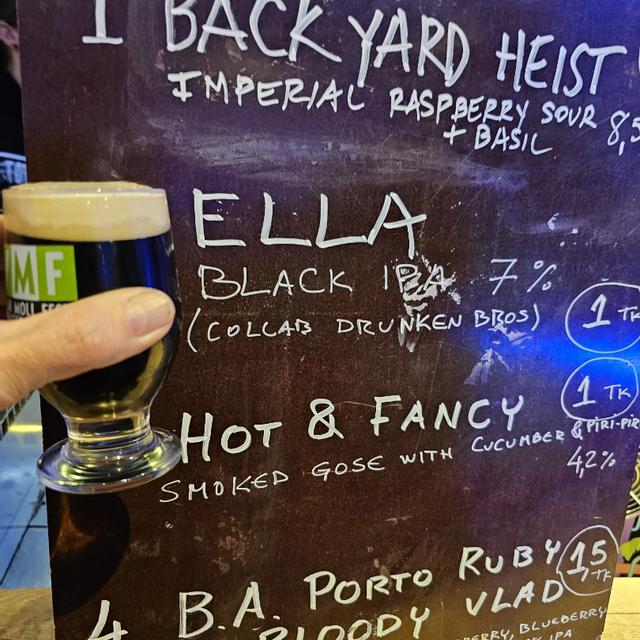 1 BACKYARD HEIST
IMPERIAL RASPBERRY SOUR
+ BASIL 8,5
ELLA
BLACK IPA 7%
(COLLAB DRUNKEN BROS) 1 TK
HOT & FANCY 1 TK
SMOKED GOSE WITH CUCUMBER & PIRI-PIRI
4,2%
4 B.A. PORTO RUBY 1,5 TK
BLOODY VLAD
BLUEBERRY
IPA
MF